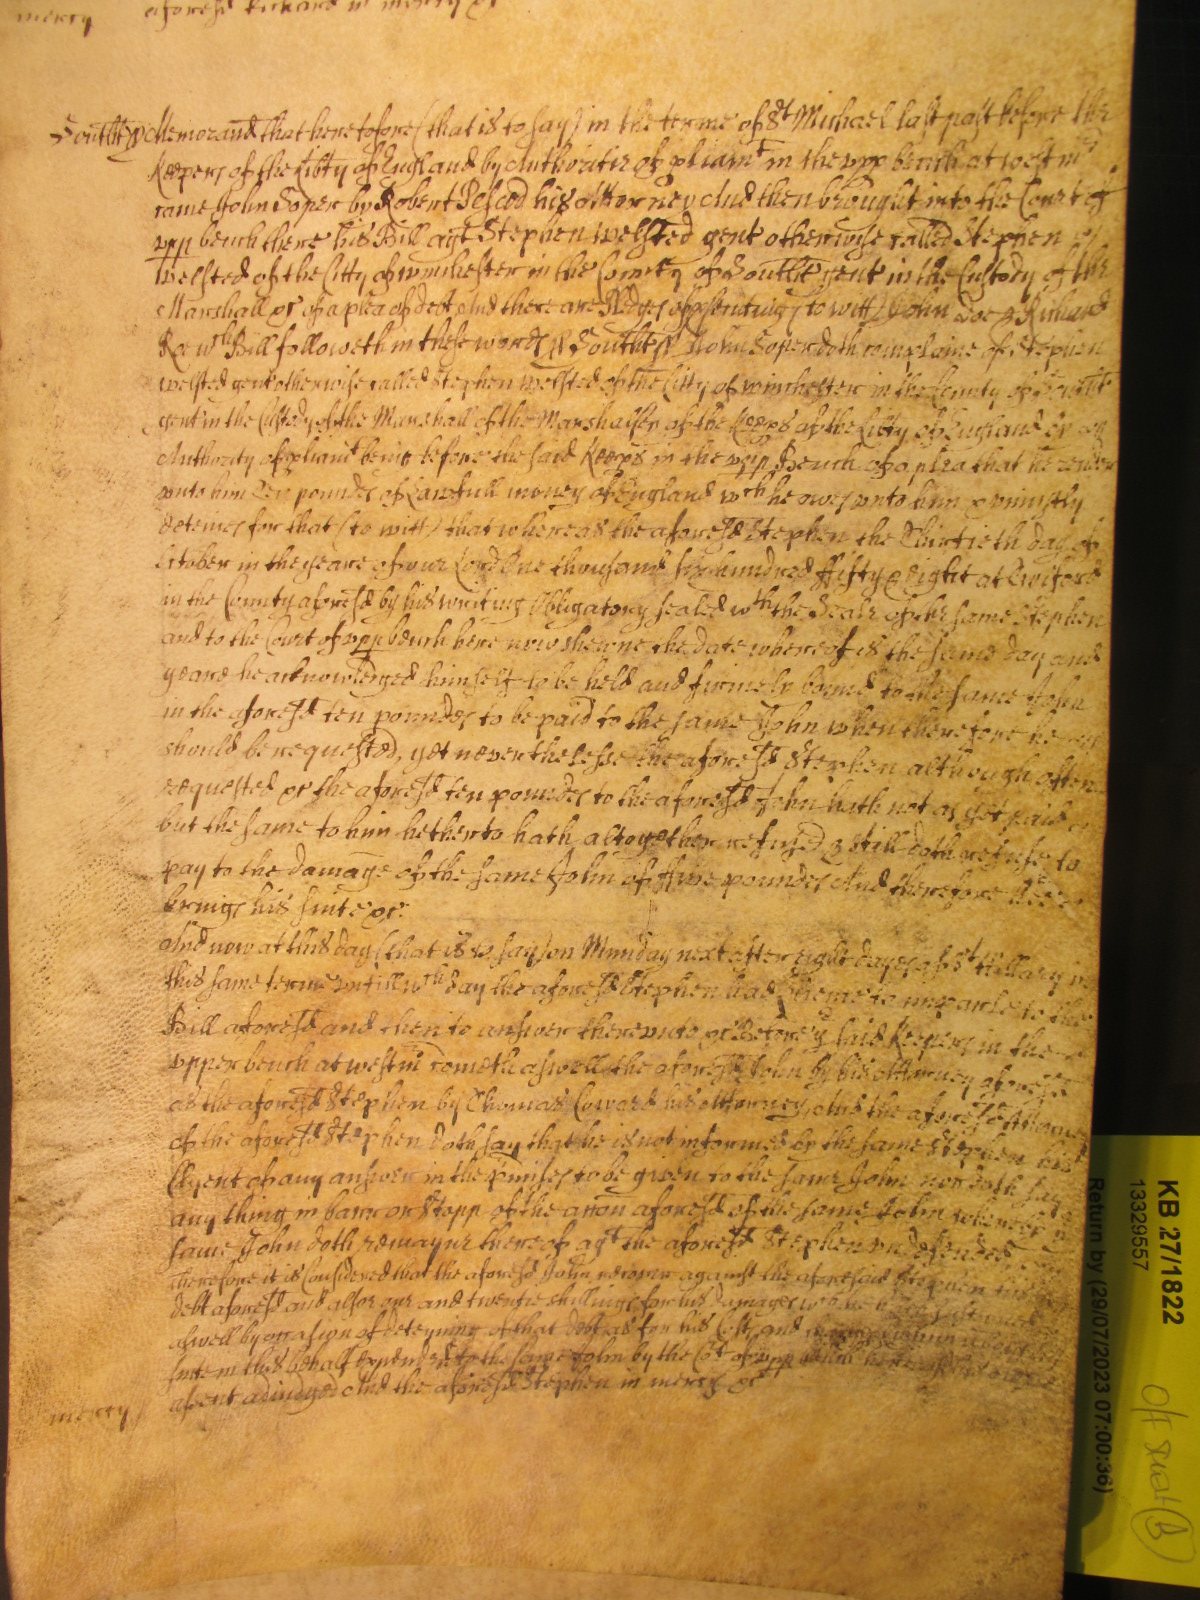 mercy aforesd Richard in mercy &c
Southt ss Memorand that heretofore (that is to say) in the terme of St Michael last past before the
Keepers of the libty of England by Authoritie of pliamt in the vpp bench at westmr
came John Soper by Robert Pescod his Attorney And then brought into the Court of
vpp bench there his Bill agt Stephen Welsted gent otherwise called Stephen
Welsted of the Citty of winchester in the County of Southt gent in the Custody of the
Marshall &c of a plea of debt And there are pledges of psecuting (to witt) John Doe & Richard
Roe wch Bill followeth in these words ss Southt ss John Soper doth complaine of Stephen
welsted gent otherwise called Stephen Welsted of the Citty of winchester in the County of Southt
gent in the Custody of the Marshall of the Marshalsey of the Keeps of the Libty of England by
Authority of pliamt being before the said Keeps in the vpp Bench of a plea that he render
vnto him Ten poundes of Lawfull money of England wch he owes vnto him & vniustly
deteines for that (to witt) that whereas the aforesd Stephen the Thirtieth day of
October in the yeare of our Lord One thousand six hundred ffifty & Eight at Twiford
in the County aforesd by his writing Obligatory sealed wth the Seale of the same Stephen
and to the Court of vpp bench here now shewne the date whereof is the same day and
yeare he acknowledged himself to be held and firmely bound to the same John
in the aforesd ten poundes to be paid to the same John when therefore he
should be requested, yet neverthelesse the aforesd Stephen although often
requested &c the aforesd ten poundes to the aforesd John hath not as yet paid
but the same to him hetherto hath altogether refused & still doth refuse to
pay to the damage of the same John of ffive poundes And therefore he
brings his suite &c.
And now at this day (that is to say) on Munday next after eight dayes of St Hillary in
this same terme vntill wch day the aforesd Stephen had licence to imparle to the
Bill aforesd and then to answer therevnto &c Before ye said Keepers in the
vpper bench at westm cometh aswell the aforesd John by his Attorney aforesd
as the aforesd Stephen by Thomas Coward his Attorney, And the aforesd Attorney
of the aforesd Stephen doth say that he is not informed by the same Stephen his
Clyent of any answer in the pmises to be given to the same John nor doth say
any thing in barr or Stopp of the accon aforesd of the same John whereby ye
same John doth remayne thereof agt the aforesd Stephen vndefended
Therefore it is Considered that the aforesd John recover against the aforesaid Stephen his
debt aforesd and alsoe one and twentie shillings for his damages which he hath susteined
aswell by occasion of deteyning of that debt as for his Costs and
suite in this behalf expended to the same John by the Cot of vpp bench here
assent adiudged And the aforesd Stephen in mercy &c
mercy
KB 27/1822
13329557
Return by (29/07/2023 07:00:36)